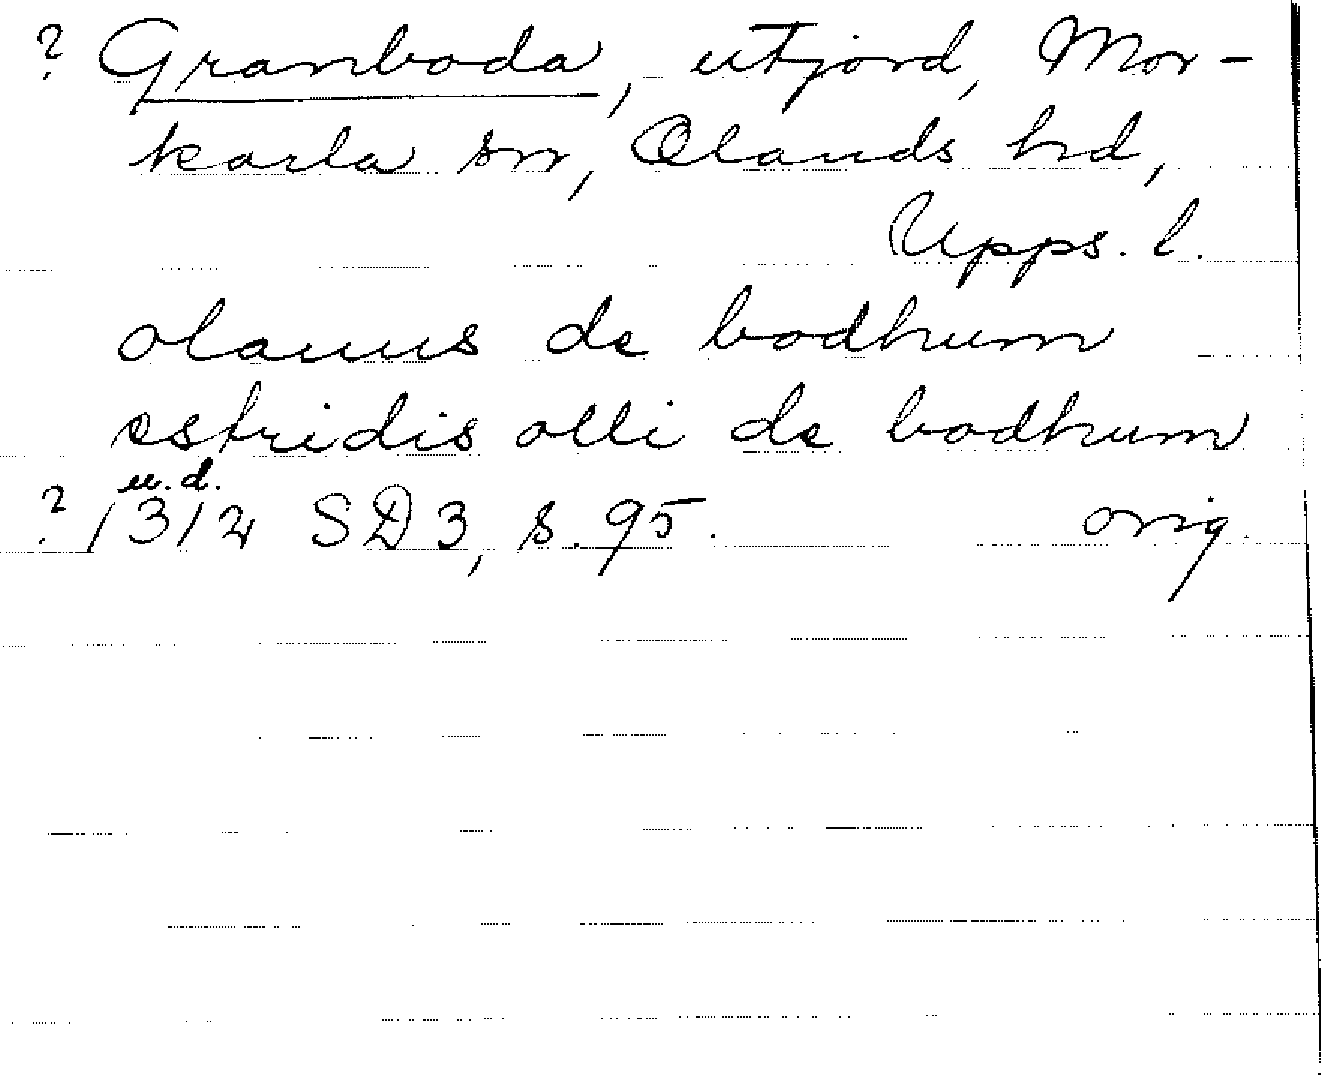 ? Granboda, utjord, Mor-
karla sn, Olands hd,
Upps. l.
olauus de bodhum
estridis olli de bodhum
u. d.
? 1312 SD3, s. 95. orig.